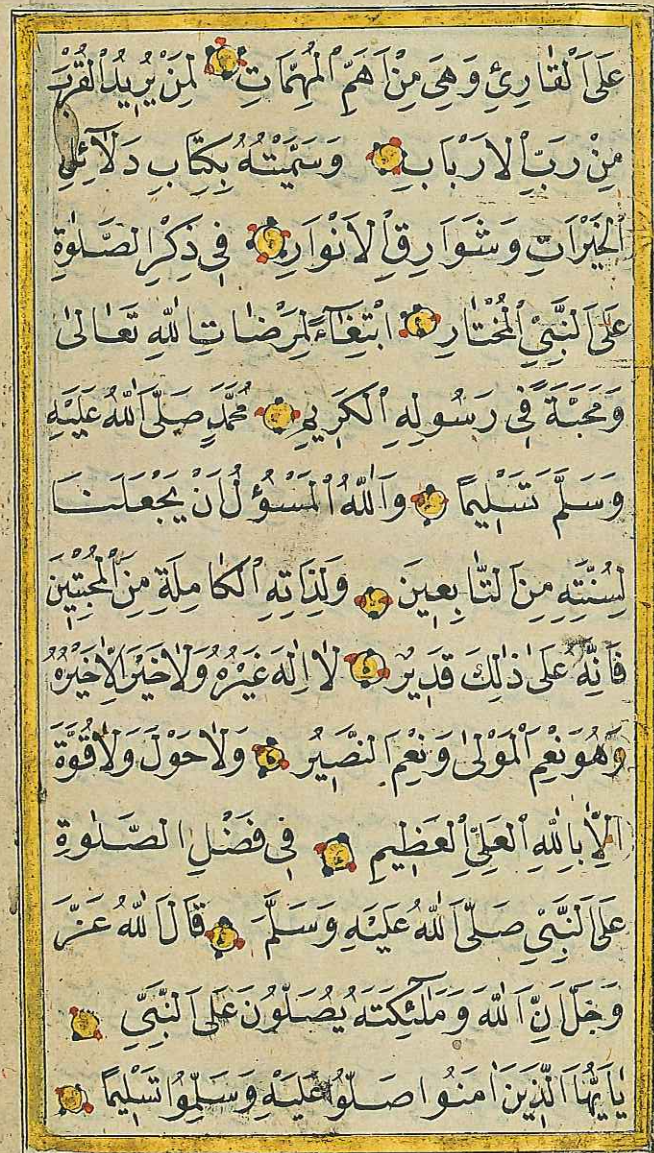 عَلَى الْقَارِئِ وَهِيَ مِنْ اَهَمِّ الْمُهِمَّاتِ لِمَنْ يُرِيدُ الْقُرْبَ
مِنْ رَبِّ الْاَرْبَابِ وَسَمَّيْتُهُ بِكِتَابِ دَلَآئِلِ
الْخَيْرَاتِ وَشَوَارِقِ الْاَنْوَارِ فِى ذِكْرِ الصَّلٰوةِ
عَلَى النَّبِيِّ الْمُخْتَارِ ابْتِغَآءً لِمَرْضَاتِ اللّٰهِ تَعَالٰى
وَمَحَبَّةً فِى رَسُولِهِ الْكَرِيمِ مُحَمَّدٍ صَلَّى اللّٰهُ عَلَيْهِ
وَسَلَّمَ تَسْلِيمًا وَاللّٰهُ الْمَسْؤُلُ اَنْ يَجْعَلَنَا
لِسُنَّتِهِ مِنَ التَّابِعِينَ وَلِذَاتِهِ الْكَامِلَةِ مِنَ الْمُحِبِّينَ
فَاِنَّهُ عَلٰى ذٰلِكَ قَدِيرٌ لَا اِلٰهَ غَيْرُهُ وَلَا خَيْرَ اِلَّا خَيْرُهُ
وَهُوَ نِعْمَ الْمَوْلٰى وَنِعْمَ النَّصِيرُ وَلَا حَوْلَ وَلَا قُوَّةَ
اِلَّا بِاللّٰهِ الْعَلِيِّ الْعَظِيمِ فِى فَضْلِ الصَّلٰوةِ
عَلَى النَّبِيِّ صَلَّى اللّٰهُ عَلَيْهِ وَسَلَّمَ قَالَ اللّٰهُ عَزَّ
وَجَلَّ اِنَّ اللّٰهَ وَمَلٰٓئِكَتَهُ يُصَلُّونَ عَلَى النَّبِيِّ
يَا اَيُّهَا الَّذِينَ اٰمَنُوا صَلُّوا عَلَيْهِ وَسَلِّمُوا تَسْلِيمًا